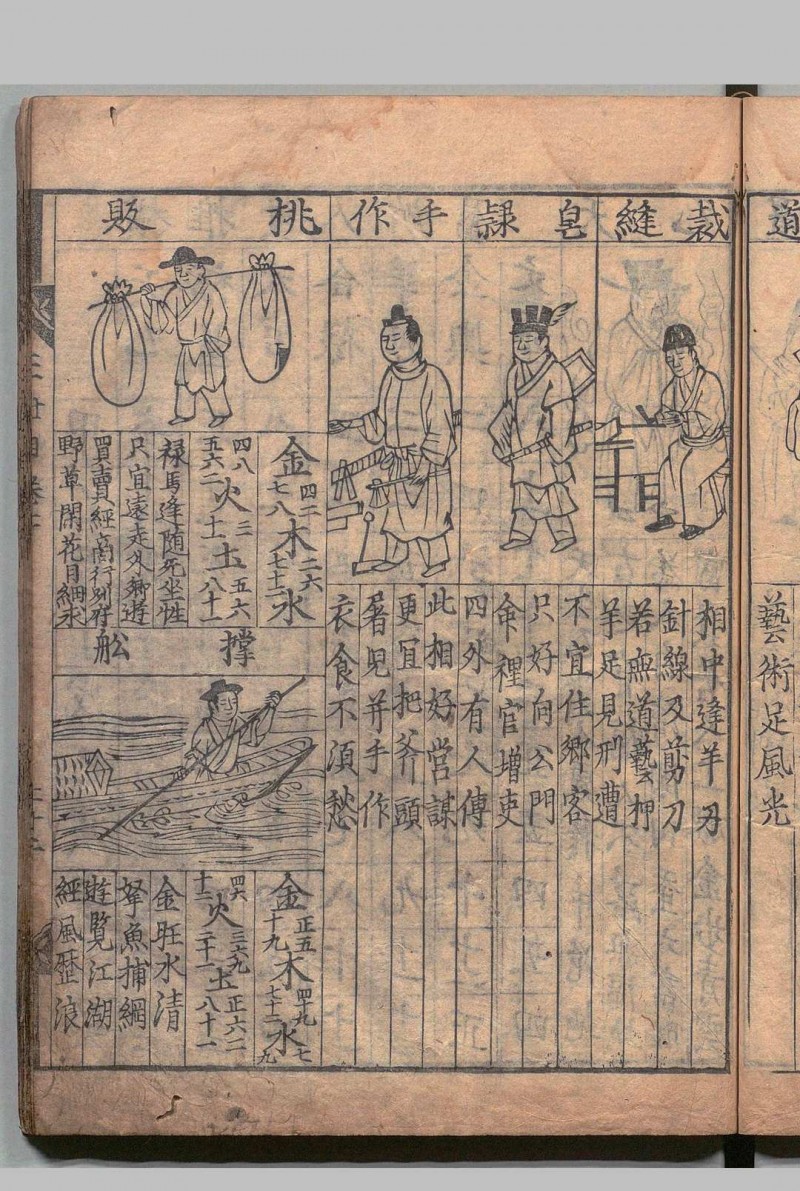 道
藝術足風光
裁縫
相中逢羊刃
針線及剪刀
若無道藝押
羊足見刑遭
皂隸
不宜住鄉客
只好向公門
命裡官增吏
四外有人傳
手作
此相好營謀
更宜把斧頭
若見并手作
衣食不須愁
桃販
金 四二 七八 木 二六 七十二 水
四八 五六二 火 三 十一 土 五六 八十一
祿馬逢隨死坐性
只宜遠走外
買賣經商行
野草閑花目
撑舩
金 正五 十九 木 四十九 七十二 水 七 九
四六 十二 火 三六九 二十一 土 正六二 八十一
金旺水清
拏魚捕網
遊覽江湖
經風歷浪